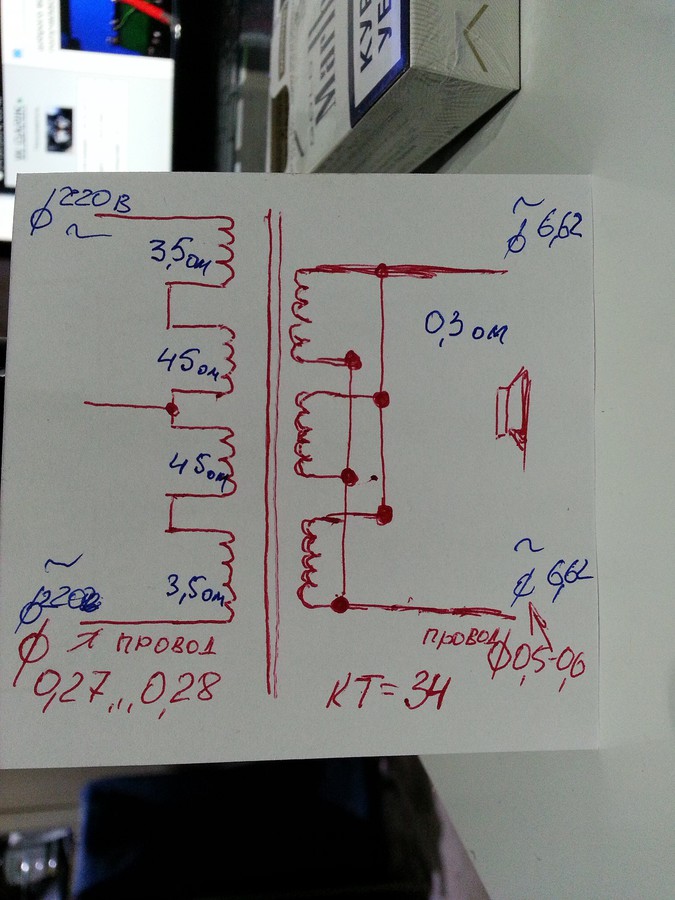 ϕ 220В
~
3,5ом
45ом
45ом
3,5ом
~
ϕ 220в
ϕ π ПРОВОД
0,27...0,28
~
ϕ 6,62
0,3 ом
~
ϕ 6,62
ПРОВОД ϕ0,5-0,6
КТ=34